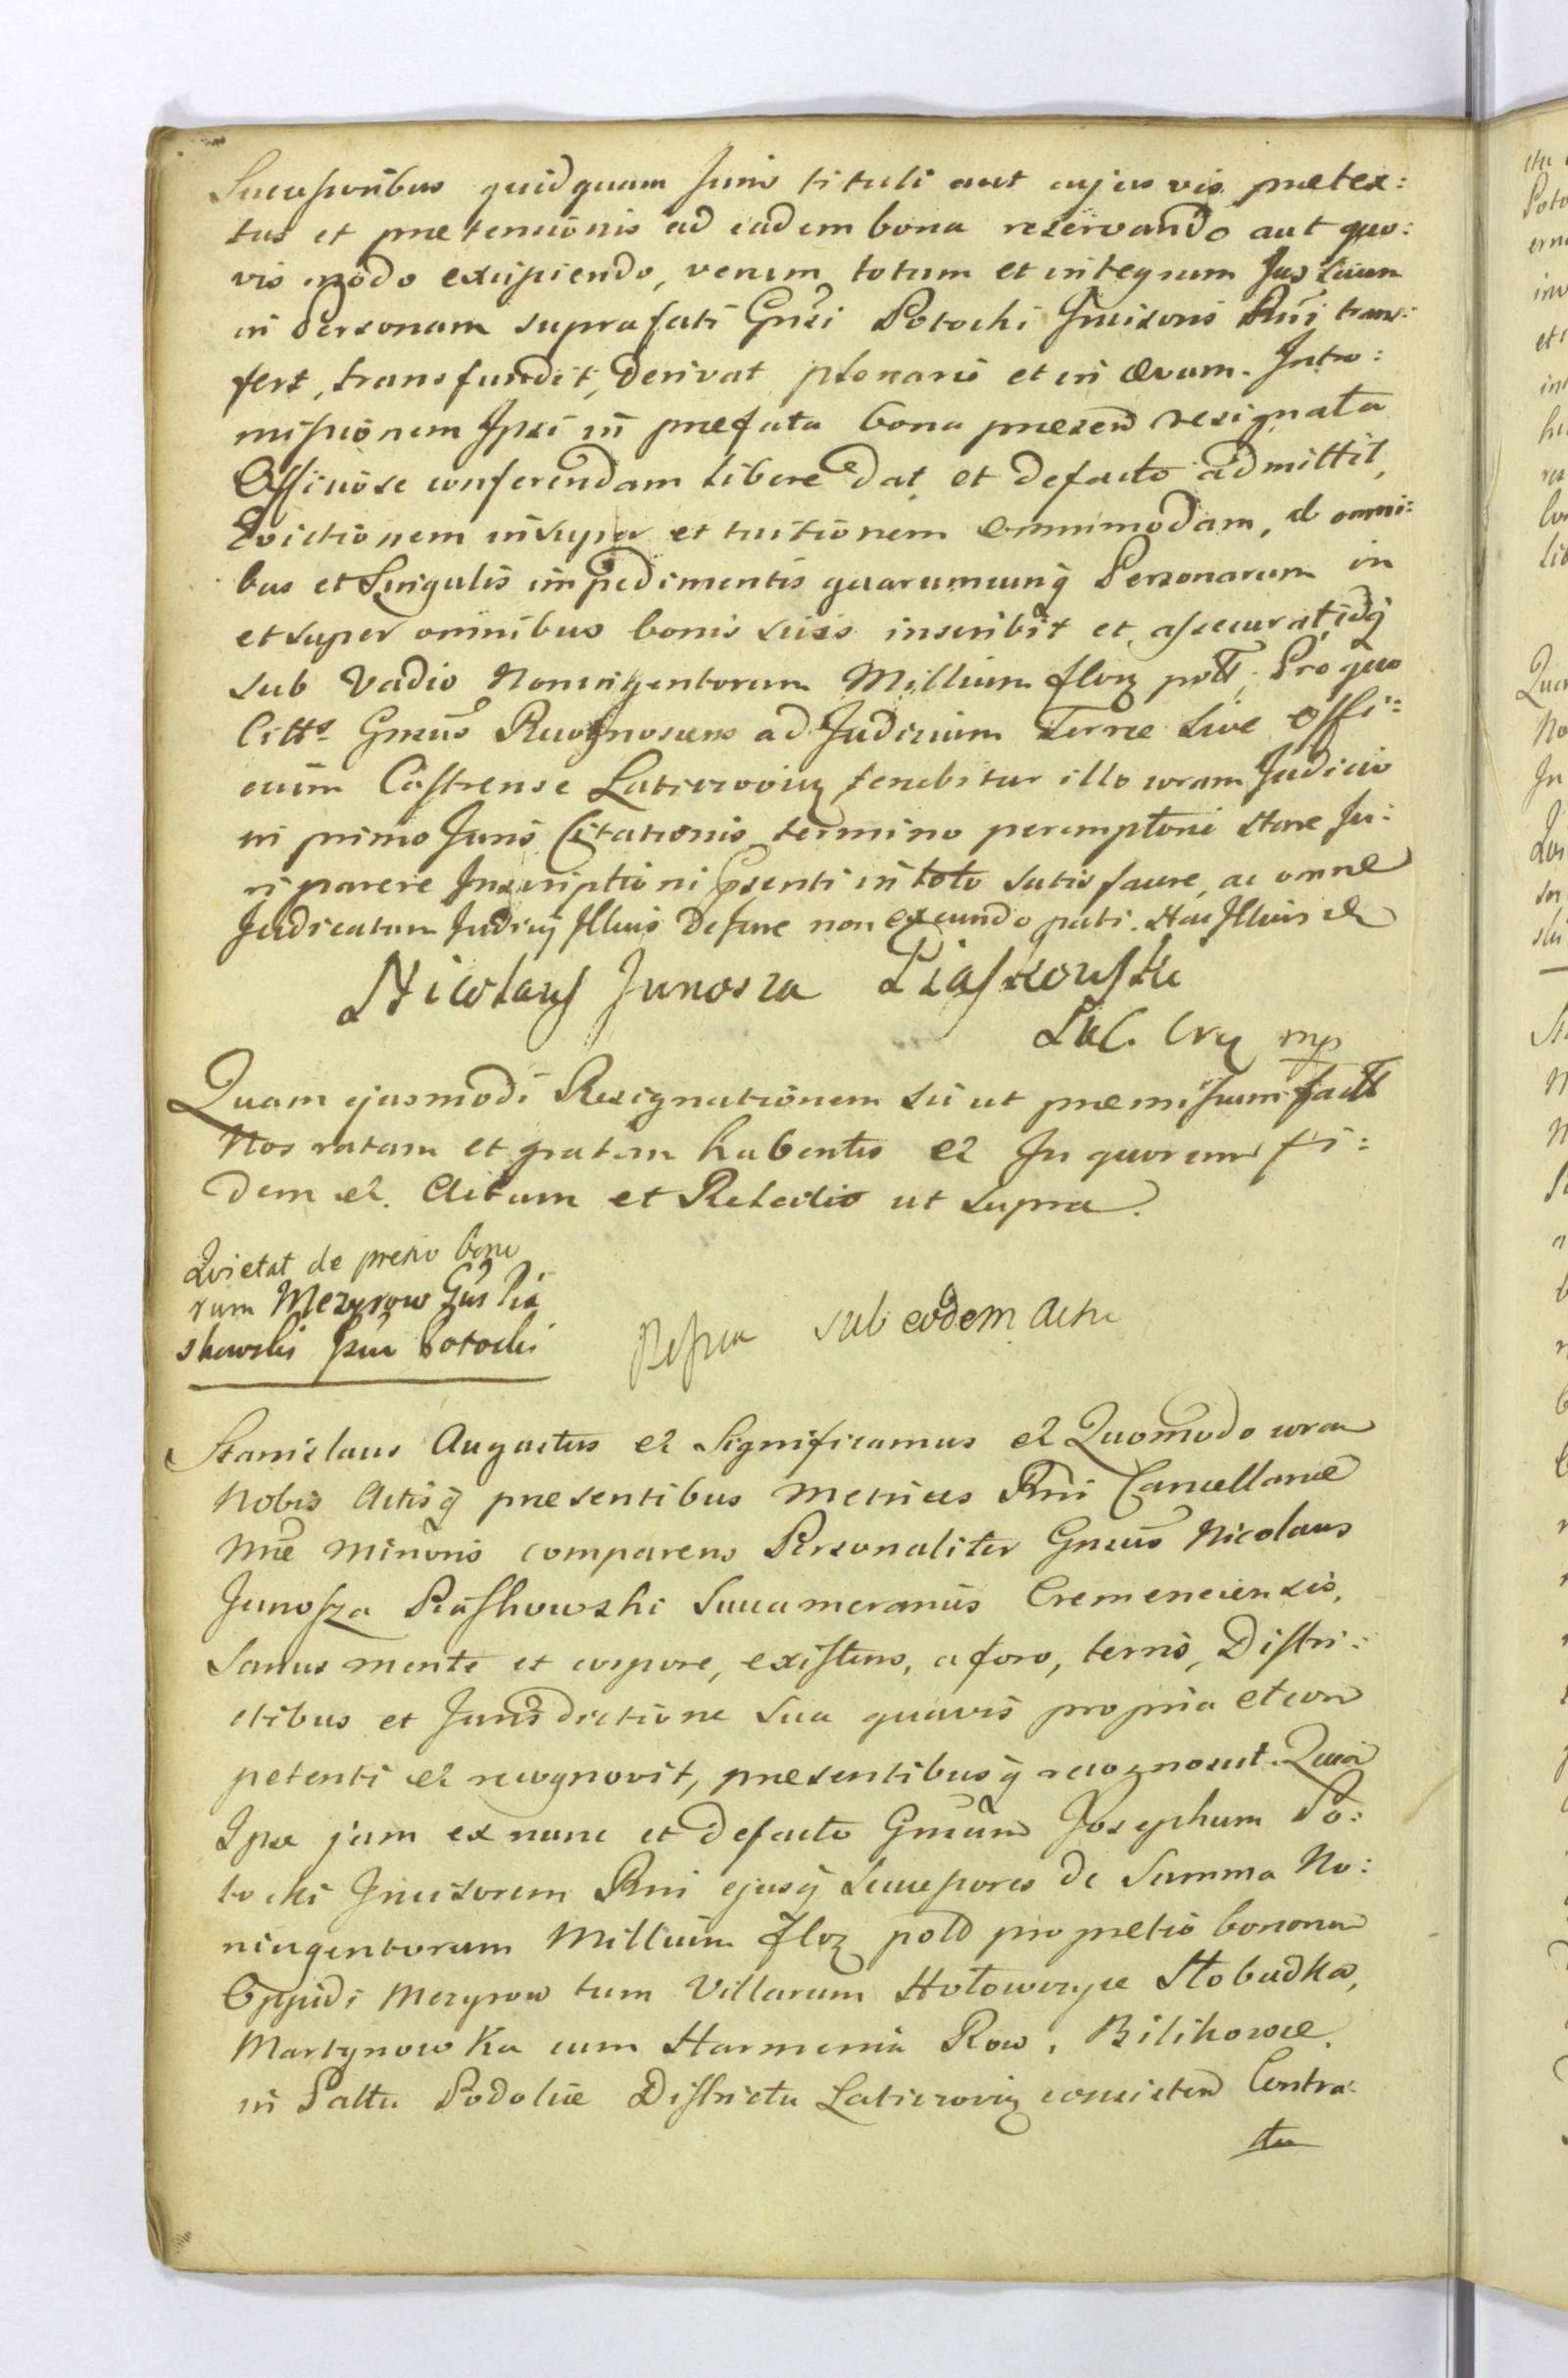 Successoribus quidquam Juris tituli aut cujus vis prætex:
tus et prætensionis ad eadem bona reservando aut quo:
vis modo excipiendo, verum totum et integrum Jus suum
in Personam suprafati Gnsi Potocki Incisoris Rni trans:
fert, transfundit, Derivat plenarie et in ævum. Intro:
missionem Ipsi in præfata bona præsend resignata
Officiose conferendam libere Dat et defacto admittit,
Evictionem insuper et tuitionem omnimodam, ab omni:
bus et Singulis impedimentis quarumcunq Personarum in
et super omnibus bonis suis inscribit et assecurat, idq
sub Vadio Nonningentorum Millium florz poll, Pro quo
Citts Gnsus Recognoscens ad Judicium Terræ sive Offi:
cium Castrense Laticzoviez tenebitur illo coram Judicio
in primo Juris Citationis termino peremptorie stare Ju:
ri parere Inscriptioni Psenti in toto satisfacere, ac omne
Judicatum Judicij Illius Defacre non exeundo pati. Hac Illius et
Nicolaus Junosza Piaskowski
Suc. Crz mp
Quam ejusmodi Resignationem sic ut præmissum factt
Nos ratam et gratam habentes et In quorum fi:
dem et. Actum et Relatio ut supra.
Quietat de prezio bono
rum Mezyrow Gus Pia
skowski Gsui Potocki
sub eodem Actu
Stanislaus Augustus et Significamus et Quomodo coram
Nobis Actisq præsentibus Metrices Rni Cancellariæ
Nræ Minoris comparens Personaliter Gnsus Nicolaus
Junosza Piaskowski Succamerarius Cremenecensis,
Sanus mente et corpore, existens, a foro, terris, Distri:
ctibus et Jurisdictione sua quavis propria et com
petenti et recognovit, præsentibusq recognoscit. Quia
Ipse jam ex nunc et defacto Gnsum Josephum Po:
tocki Incisorem Rni ejusq Successores de Summa No:
ningentorum Millium florz pold pro pretio bonorum
Oppidi Mezyrow tum Villarum Hołowczyce Słobudka,
Martynowka cum Harmenia Row, Bilikowce
in Palltu Podoliæ Districtu Laticzoviez consisten Contra:
ctu